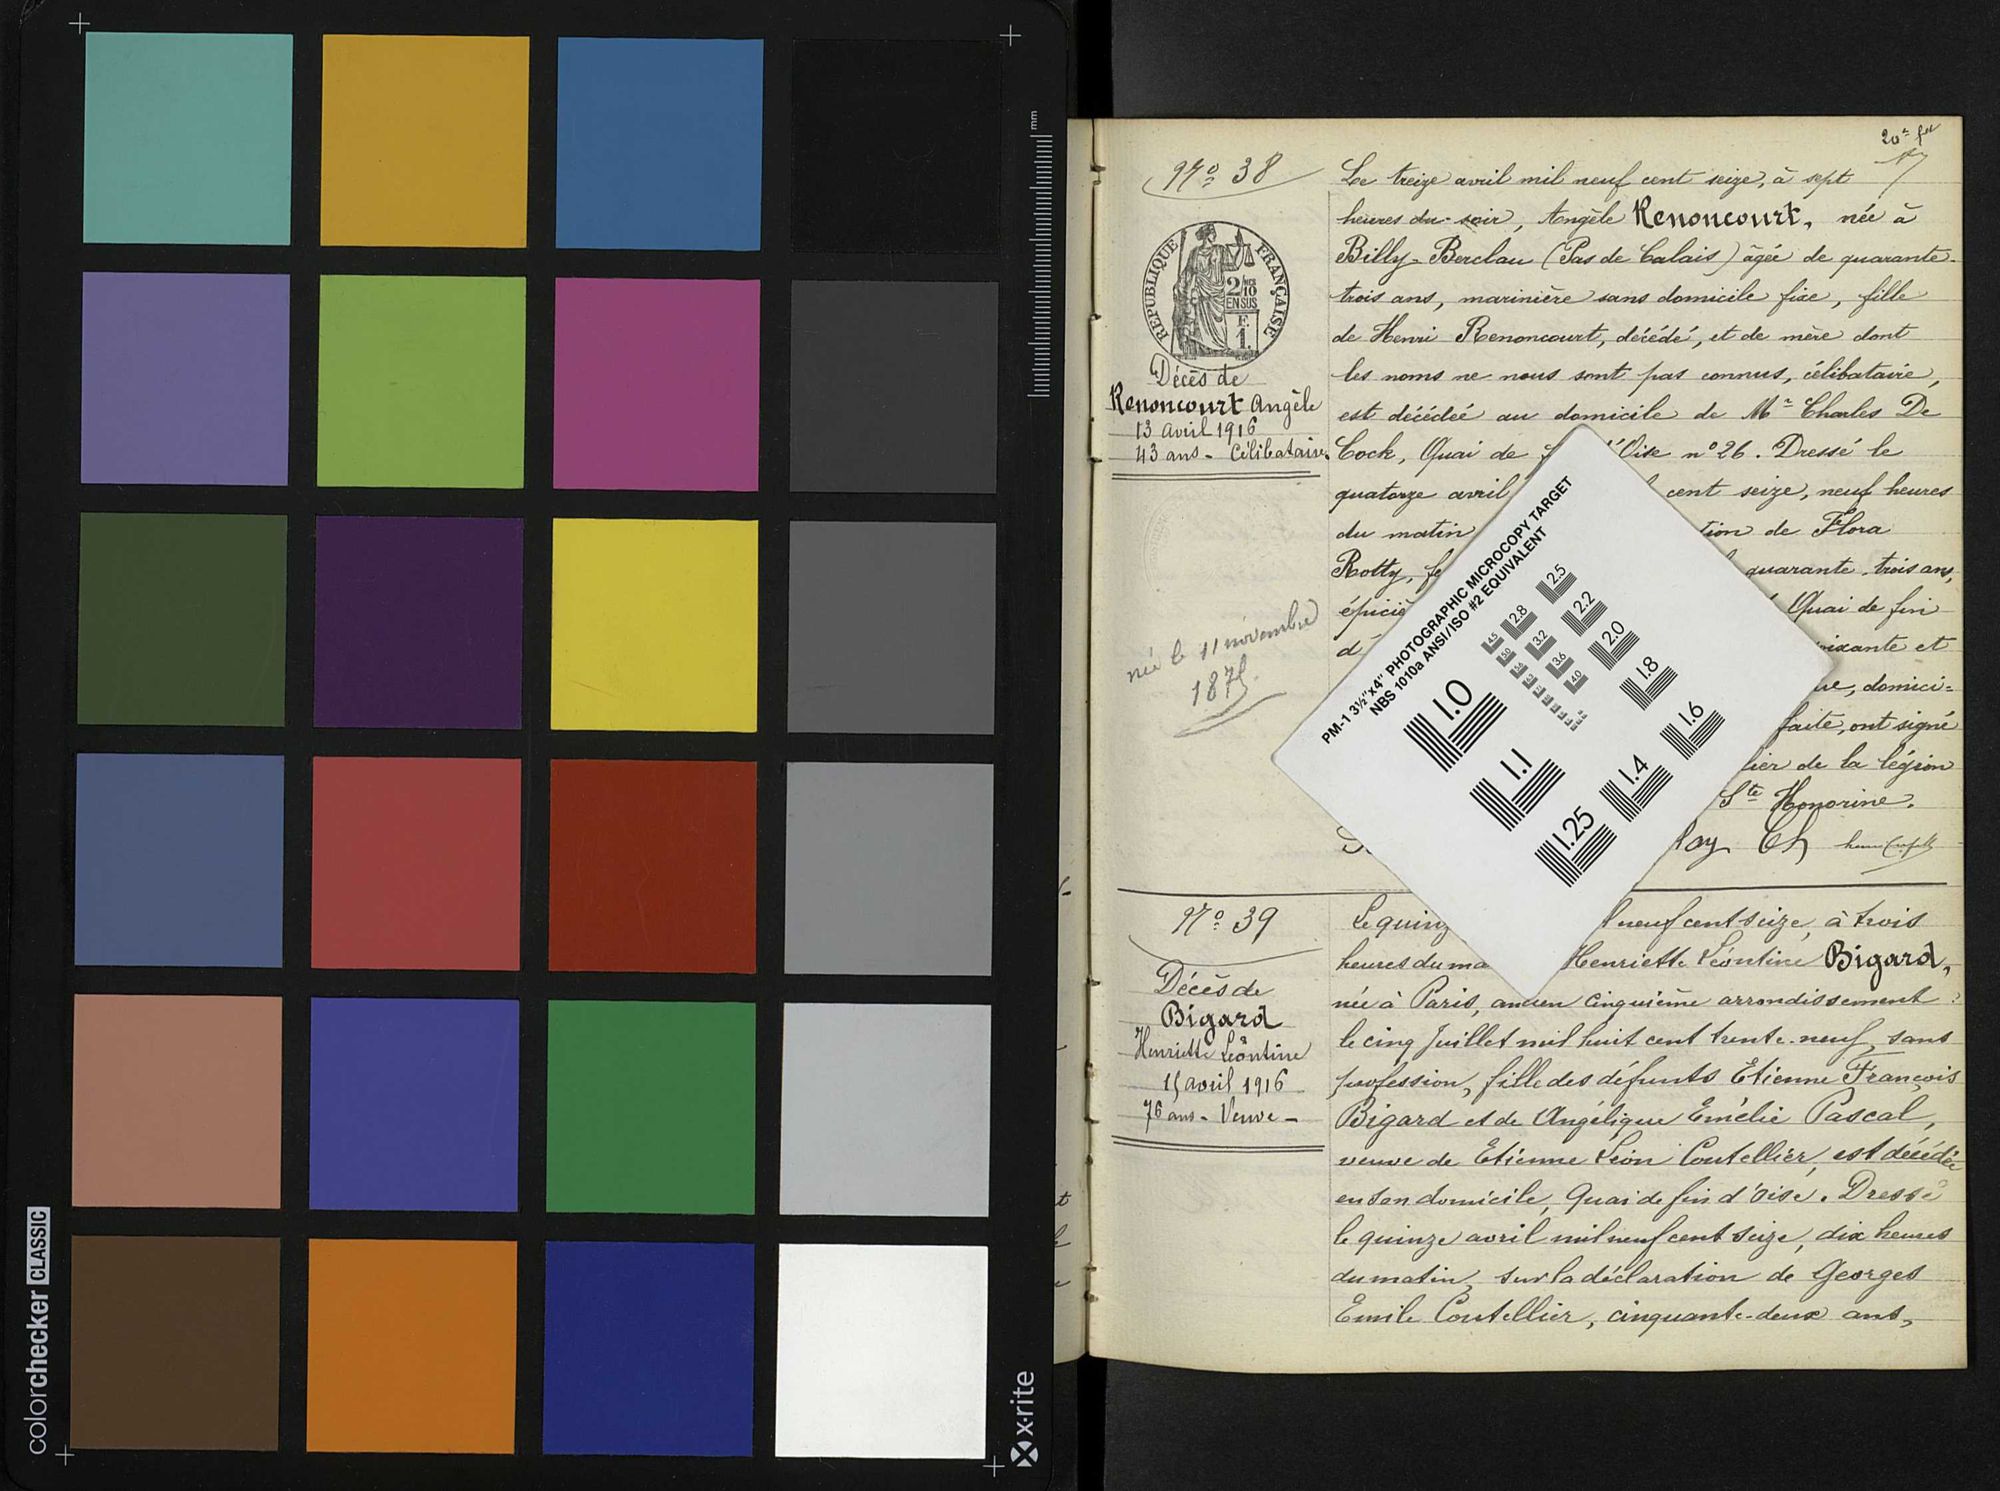 colorchecker CLASSIC
x-rite
mm
20e
N° 38
RÉPUBLIQUE FRANÇAISE
2/10
EN SUS
E.
1.
Décès de
Renoncourt Angèle
13 Avril 1916
43 ans - Célibataire
née le 11 novembre
187
Le treize avril mil neuf cent seize, à sept
heures du soir, Angèle Renoncourt, née à
Billy-Berclau (Pas de Calais) âgée de quarante-
trois ans, marinière sans domicile fixe, fille
de Henri Renoncourt, décédé, et de mère dont
les noms ne nous sont pas connus, célibataire,
est décédée au domicile de Mr Charles De
Cock, Quai de l'Oise n° 26. Dressé le
quatorze avril cent seize, neuf heures
du matin tion de Flora
Rotty, quarante-trois ans,
épiciè Quai de fin
d' oixante et
domici=
faite, ont signé
lier de la légion
Ste Honorine.
lay Ch
PM-1 3½"x4" PHOTOGRAPHIC MICROCOPY TARGET
NBS 1010a ANSI/ISO #2 EQUIVALENT
4.5 2.8 2.5
5.0 3.2 2.2
3.6 2.0
4.0 1.8
1.0 1.6
1.1 1.4
1.25
N° 39
Décès de
Bigard
Henriette Léontine
15 avril 1916
76 ans - Veuve -
Le quinz l neuf cent seize, à trois
heures du ma Henriette Léontine Bigard,
née à Paris, ancien cinquième arrondissement
le cinq Juillet mil huit cent trente-neuf, sans
profession, fille des défunts Etienne François
Bigard et de Angélique Emélie Pascal,
veuve de Etienne Léon Coutellier, est décédée
en son domicile, Quai de fin d'oise. Dressé
le quinze avril mil neuf cent seize, dix heures
du matin, sur la déclaration de Georges
Emile Coutellier, cinquante-deux ans,